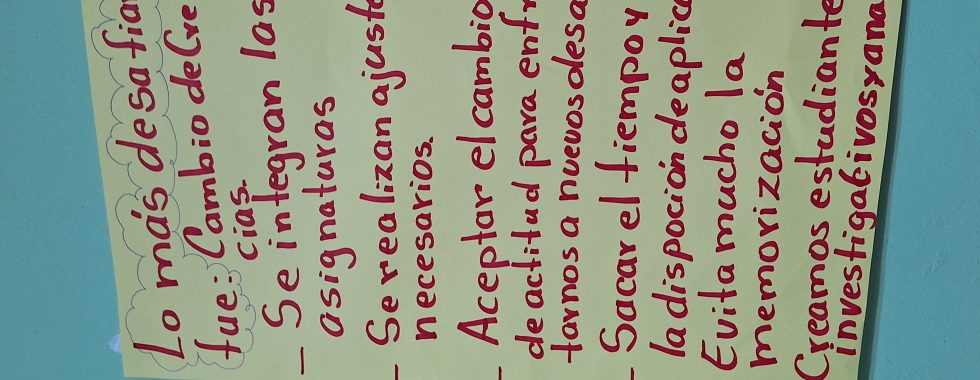 Lo más desafia
fue: Cambio de Cre
cias.
- Se integran las
asignaturas
- Se realizan ajust
necesarios.
- Aceptar el cambio
de actitud para enfr
tarnos a nuevos desa
- Sacar el tiempo y
la disposción de aplica
Evita mucho la
memorización
Creamos estudiante
investigativos y ana